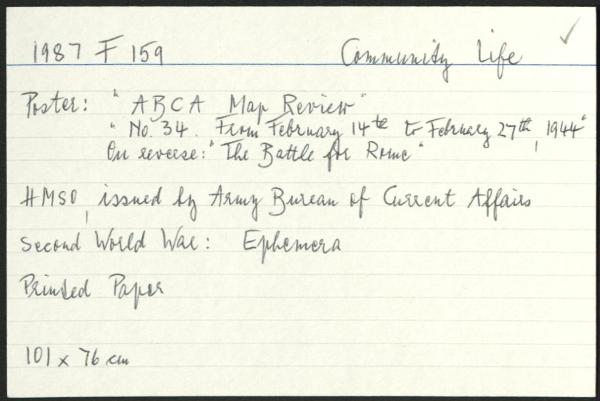 1987 F 159 Community Life ✓
Poster: "ABCA Map Review"
"No. 34. From February 14th to February 27th, 1944"
On reverse: "The Battle for Rome"
HMSO, issued by Army Bureau of Current Affairs
Second World War: Ephemera
Printed Paper
101 x 76 cm